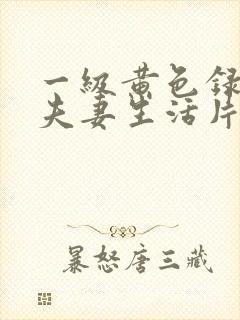 一级黄色录
夫妻生活片
暴怒唐三藏